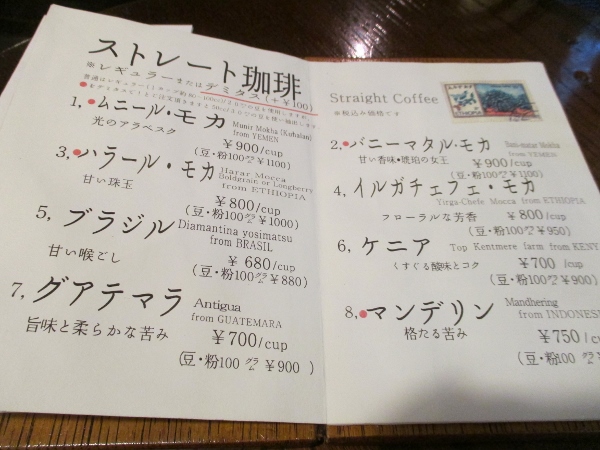 ストレート珈琲
※レギュラーまたはデミタス(+¥100)
1,●ムニール・モカ Munir Mokha (Kubaian)
from YEMEN
光のアラベスク
¥900/cup
(豆・粉100グラム¥1100)
3,●ハラール・モカ Harar Mocca
Boldgrain or Longberry
from ETHIOPIA
甘い珠玉
¥800/cup
(豆・粉100グラム¥1000)
5,ブラジル Diamantina yosimatsu
from BRASIL
甘い喉ごし
¥680/cup
(豆・粉100グラム¥880)
7,グアテマラ Antigua
from GUATEMARA
旨味と柔らかな苦み
¥700/cup
(豆・粉100グラム¥900)
Straight Coffee
※税込み価格です
2,●バニーマタル・モカ Bani-matar Mokha
from YEMEN
甘い香味・琥珀の女王 ¥900/cup
(豆・粉100グラム¥1100)
4,イルガチェフェ・モカ
Yirga-Chefe Mocca from ETHIOPIA
フローラルな芳香 ¥800/cup
(豆・粉100グラム¥950)
6,ケニア Top Kentmere farm from KENY
くすぐる酸味とコク ¥700/cup
(豆・粉100グラム¥900)
8,●マンデリン Mandhering
from INDONES
格たる苦み
¥750/cu
(豆・粉100グラム¥